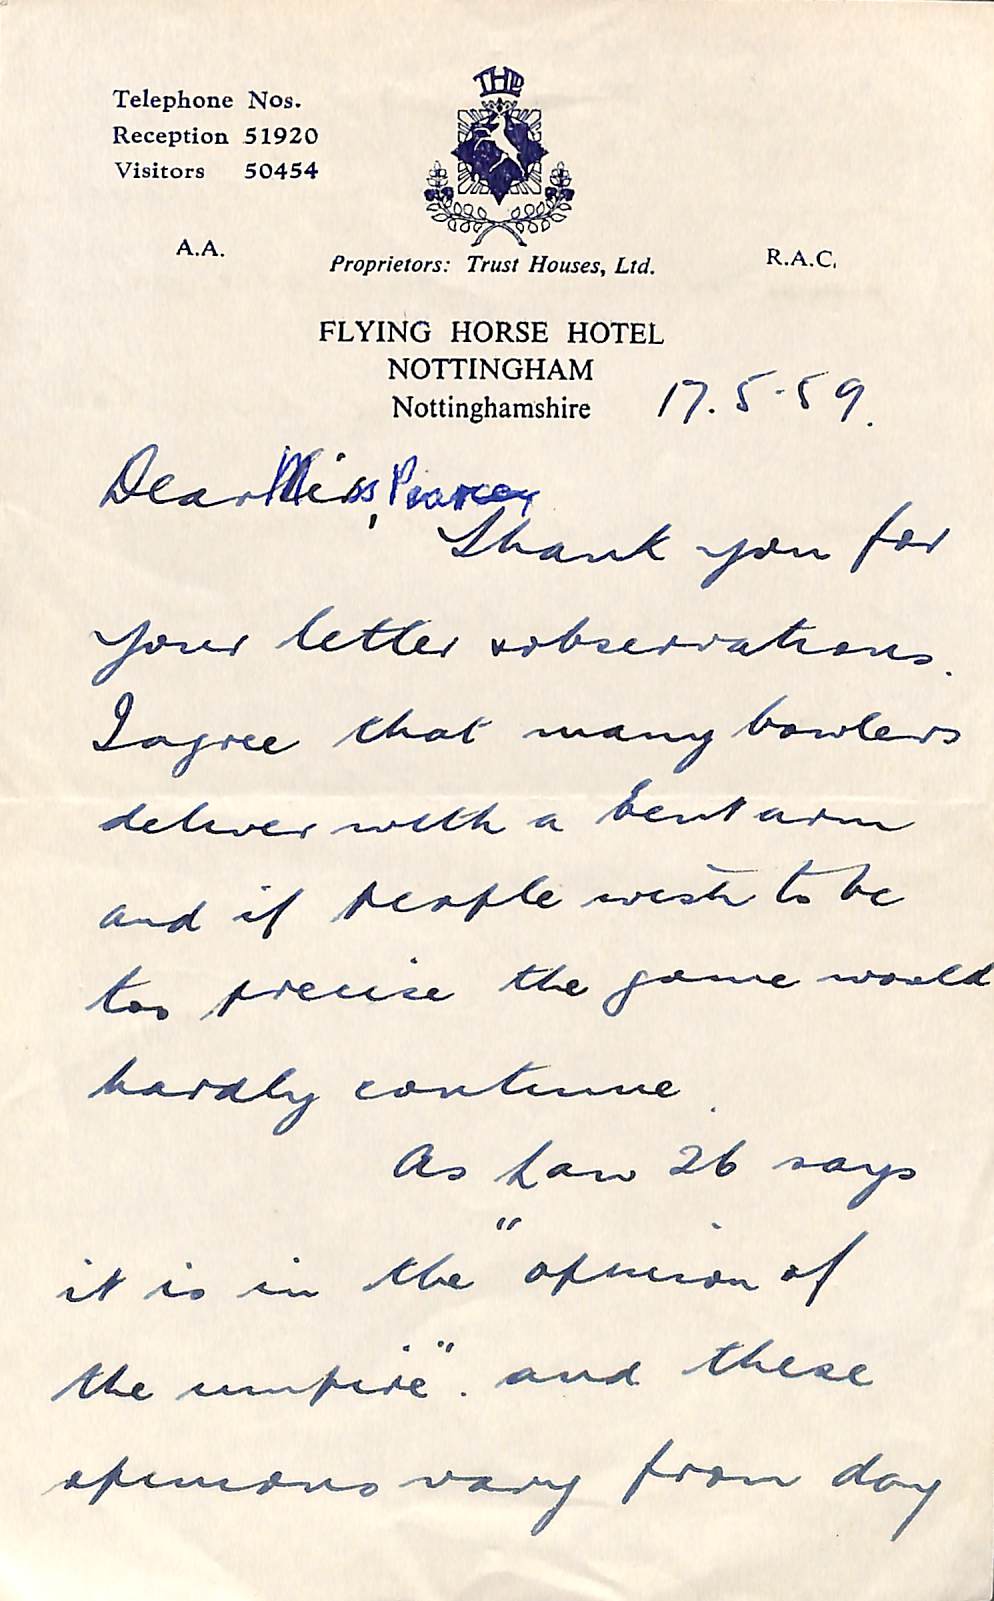 Telephone Nos.
Reception 51920
Visitors 50454
THL
A.A.
Proprietors: Trust Houses, Ltd.
R.A.C.
FLYING HORSE HOTEL
NOTTINGHAM
Nottinghamshire
17.5.59.
Dear Miss
Thank you for
your letter & observations.
I agree that many bowlers
deliver with a bent arm
and if people wish to be
too precise the game would
hardly continue.
As Law 26 says
it is in the "opinion of
the umpire". and these
opinions vary from day